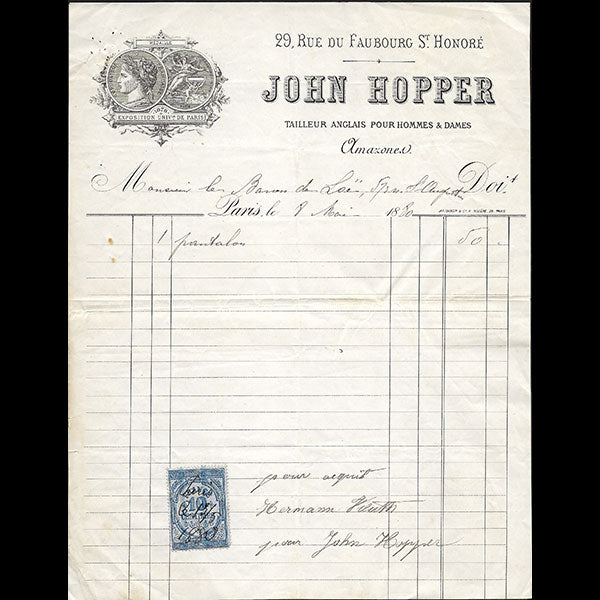 29, RUE DU FAUBOURG ST. HONORÉ
MÉDAILLE
1878
EXPOSITION UNIVle DE PARIS
JOHN HOPPER
TAILLEUR ANGLAIS POUR HOMMES & DAMES
Amazones.
Monsieur le Baron de Doit
Paris, le 8 Mai 1880
1 pantalon 50 -
pour acquit
Paris
1880
Hermann
pour John Hopper